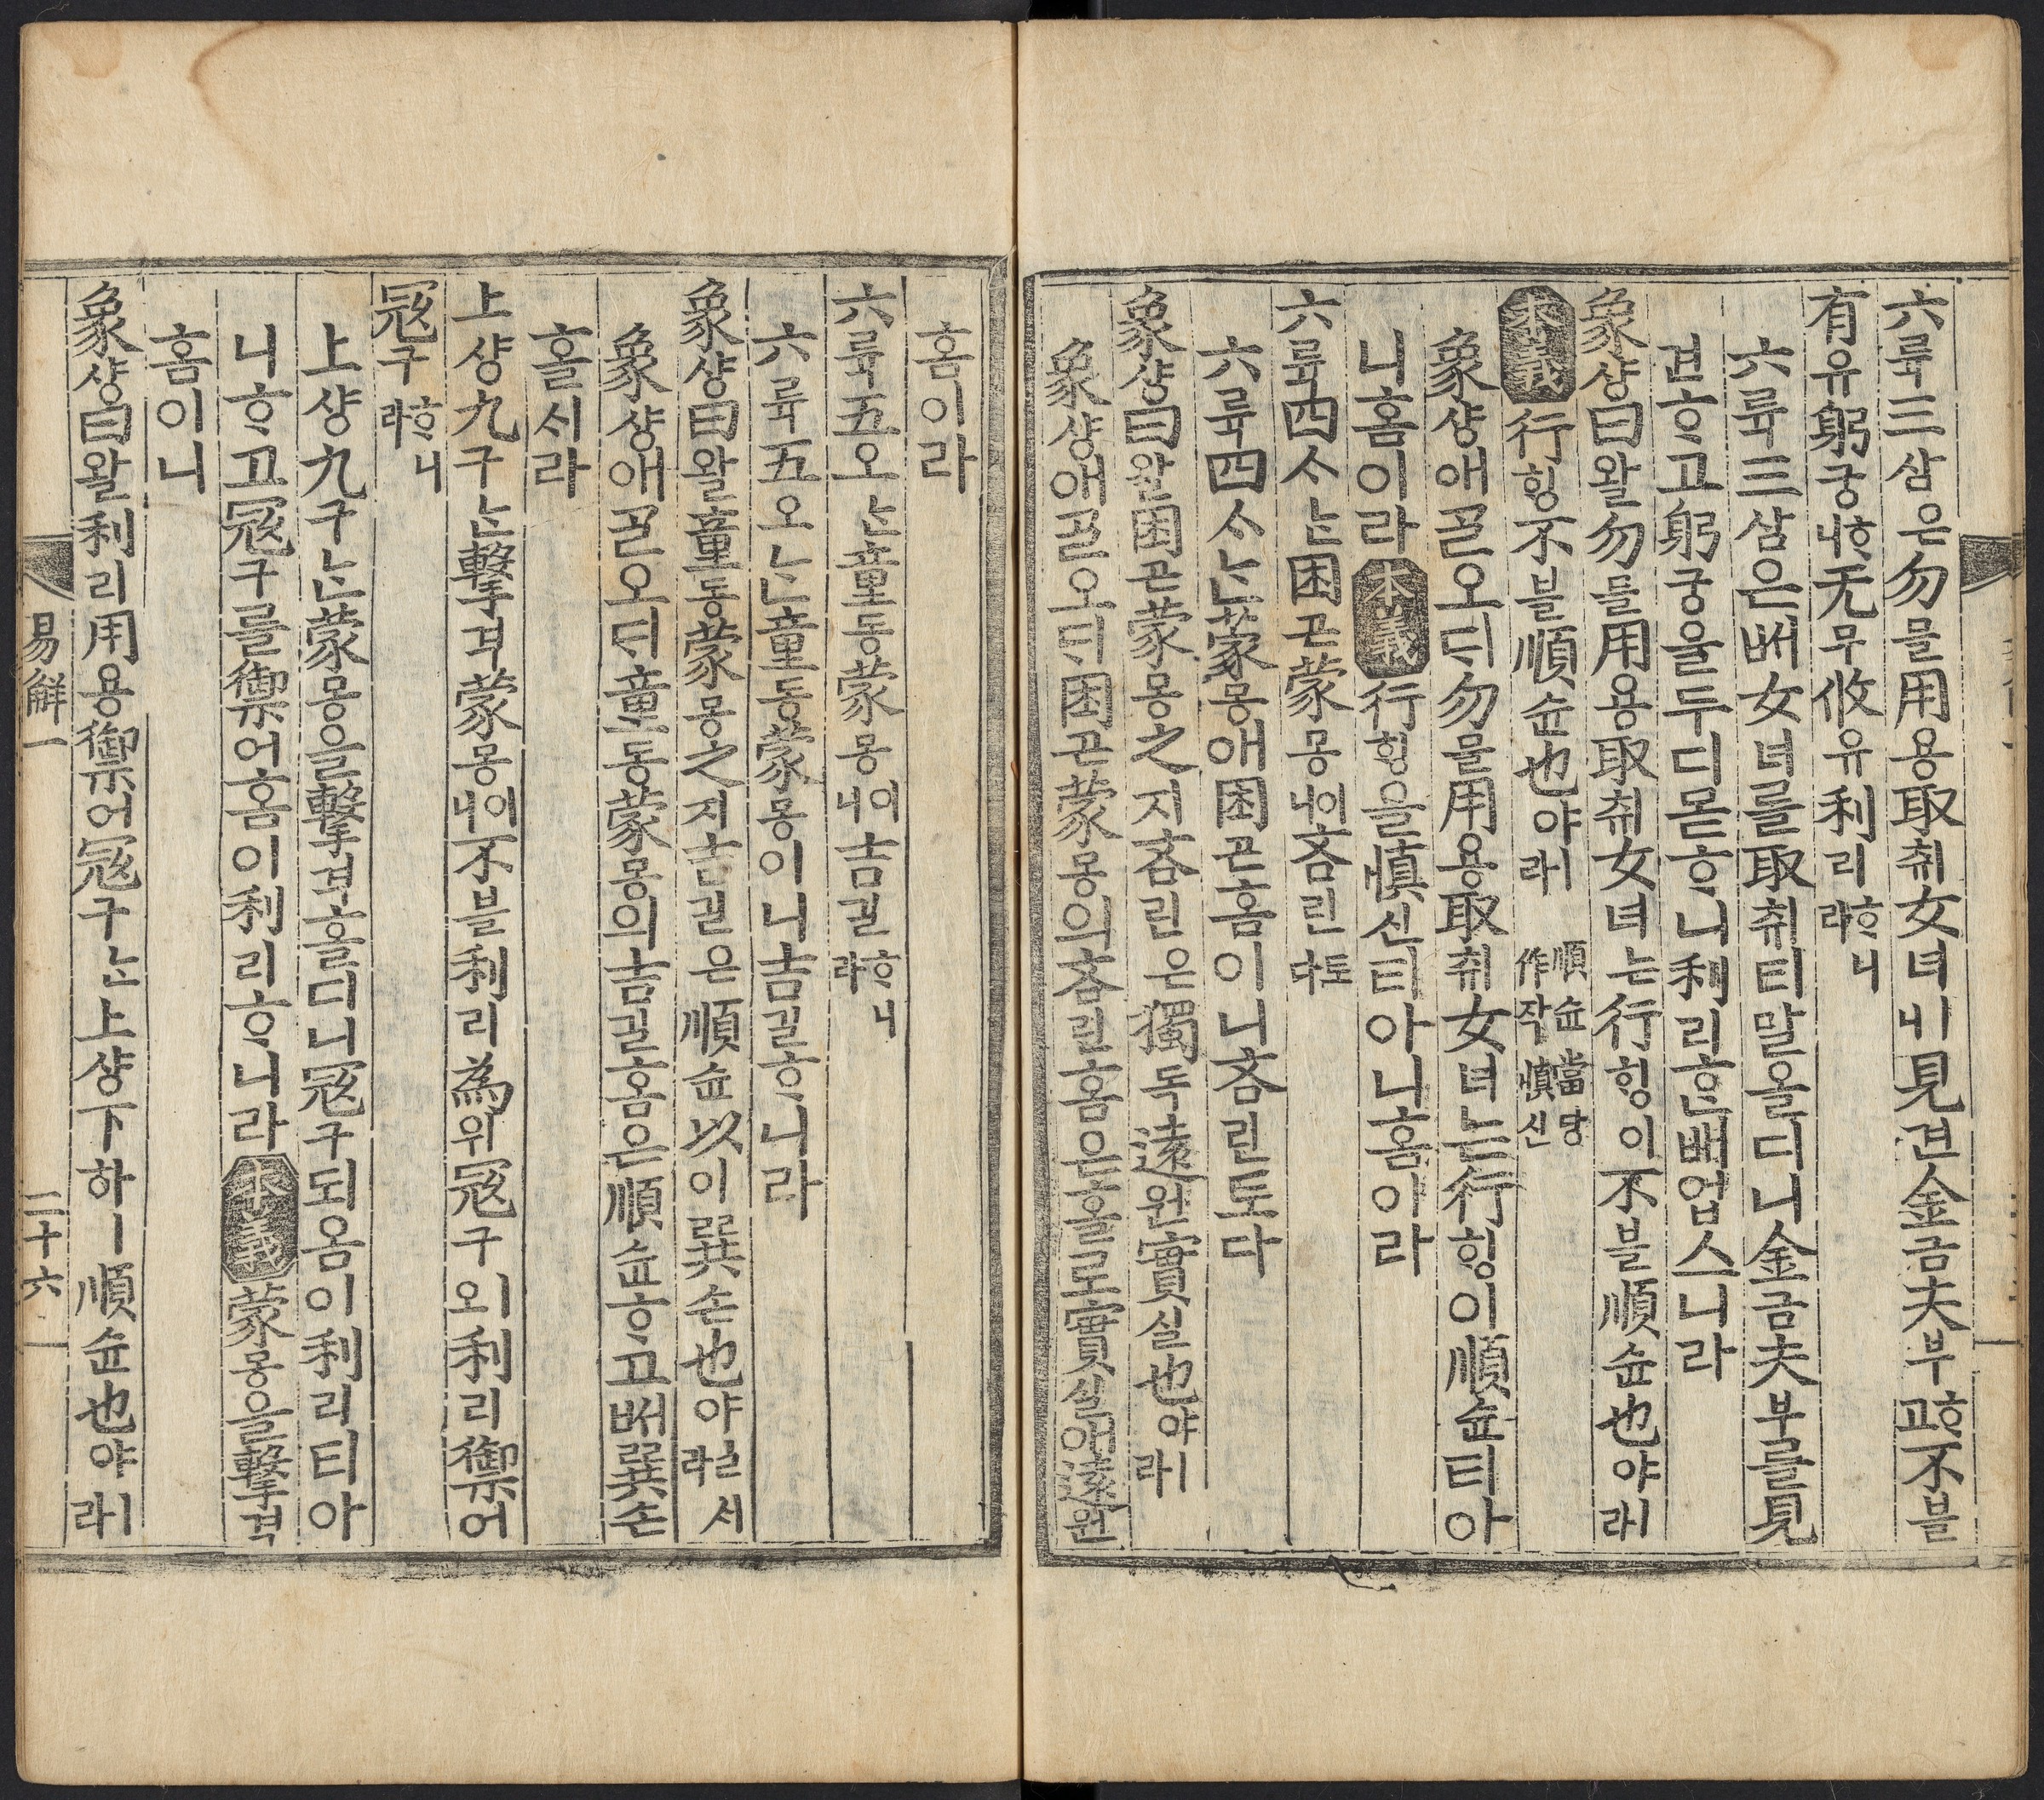 六륙三삼은勿믈用용取ᄎᆔ女녀ㅣ니見견金금夫부ᄒᆞ고不블
有유躬궁ᄒᆞ니无무攸유利리ᄒᆞ니라
六륙三삼은뻐女녀를取ᄎᆔ티말올디니金금夫부를見
견ᄒᆞ고躬궁을두디몯ᄒᆞ니利리ᄒᆞᆫ배업스니라
象샹曰왈勿믈用용取ᄎᆔ女녀는行ᄒᆡᆼ이不블順슌也야ㅣ라
本義行ᄒᆡᆼ不블順슌也야ㅣ라 順슌當당作작愼신
象샹애ᄀᆞᆯ오ᄃᆡ勿믈用용取ᄎᆔ女녀는行ᄒᆡᆼ이順슌티아
니홈이라本義行ᄒᆡᆼ을愼신티아니홈이라
六륙四ᄉᆞᄂᆞᆫ困곤蒙몽이니吝린토다
六륙四ᄉᆞᄂᆞᆫ蒙몽애困곤홈이니吝린토다
象샹曰왈困곤蒙몽之지吝린은獨독遠원實실也야ㅣ라
象샹애ᄀᆞᆯ오ᄃᆡ困곤蒙몽의吝린홈은홀로實실애遠원
홈이라
六륙五오ᄂᆞᆫ童동蒙몽이니吉길ᄒᆞ니라
六륙五오ᄂᆞᆫ童동蒙몽이니吉길ᄒᆞ니라
象샹曰왈童동蒙몽之지吉길은順슌以이巽손也야ㅣㄹ서라
象샹애ᄀᆞᆯ오ᄃᆡ童동蒙몽의吉길홈은順슌ᄒᆞ고뻐巽손
홀시라
上샹九구ᄂᆞᆫ擊격蒙몽이니不블利리為위冦구ㅣ오利리禦어
冦구ᄒᆞ니라
上샹九구ᄂᆞᆫ蒙몽을擊격홀디니冦구되옴이利리티아
니ᄒᆞ고冦구를禦어홈이利리ᄒᆞ니라本義蒙몽을擊격
홈이니
象샹曰왈利리用용禦어冦구ᄂᆞᆫ上샹下하ㅣ順슌也야ㅣ라
易觧一 二十六